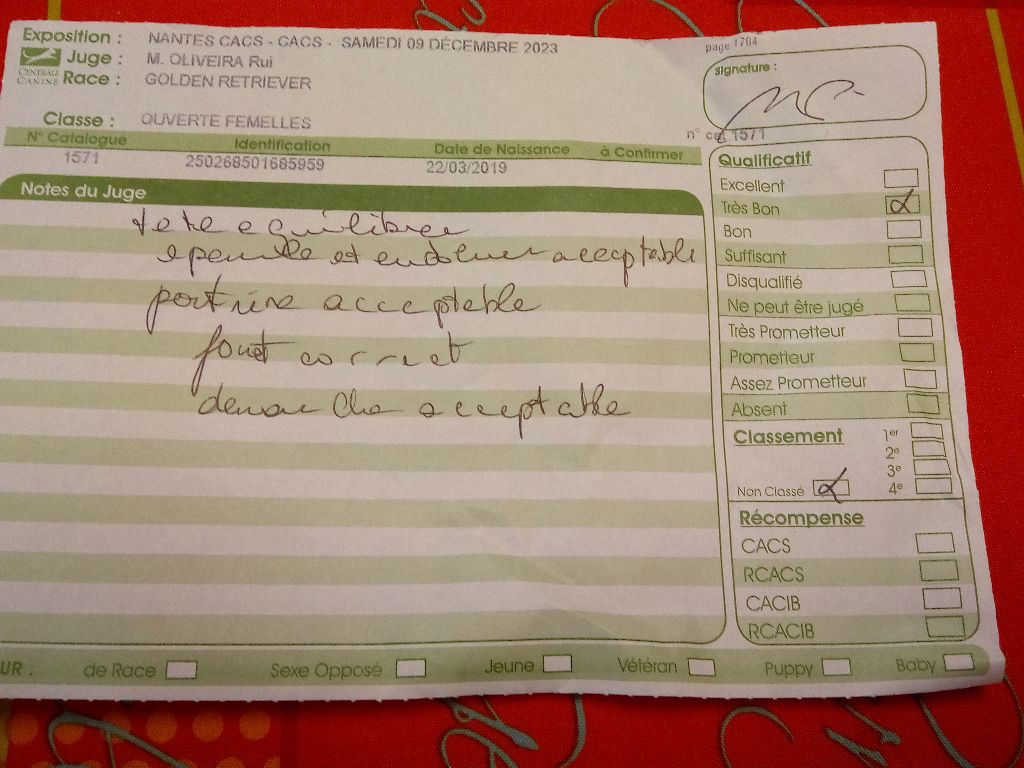 Exposition : NANTES CACS - CACS - SAMEDI 09 DÉCEMBRE 2023
page 1764
Juge : M. OLIVEIRA Rui
CENTRALE CANINE
Race : GOLDEN RETRIEVER
signature :
Classe : OUVERTE FEMELLES
n° cat 1571
N° Catalogue Identification Date de Naissance à Confirmer
1571 250268501685959 22/03/2019
Notes du Juge
tete equilibree
epaule et encolure acceptable
poitrine acceptable
fouet correct
demarche acceptable
Qualificatif
Excellent
Très Bon
Bon
Suffisant
Disqualifié
Ne peut être jugé
Très Prometteur
Prometteur
Assez Prometteur
Absent
Classement
1er
2e
3e
Non Classé 4e
Récompense
CACS
RCACS
CACIB
RCACIB
UR : de Race Sexe Opposé Jeune Vétéran Puppy Baby